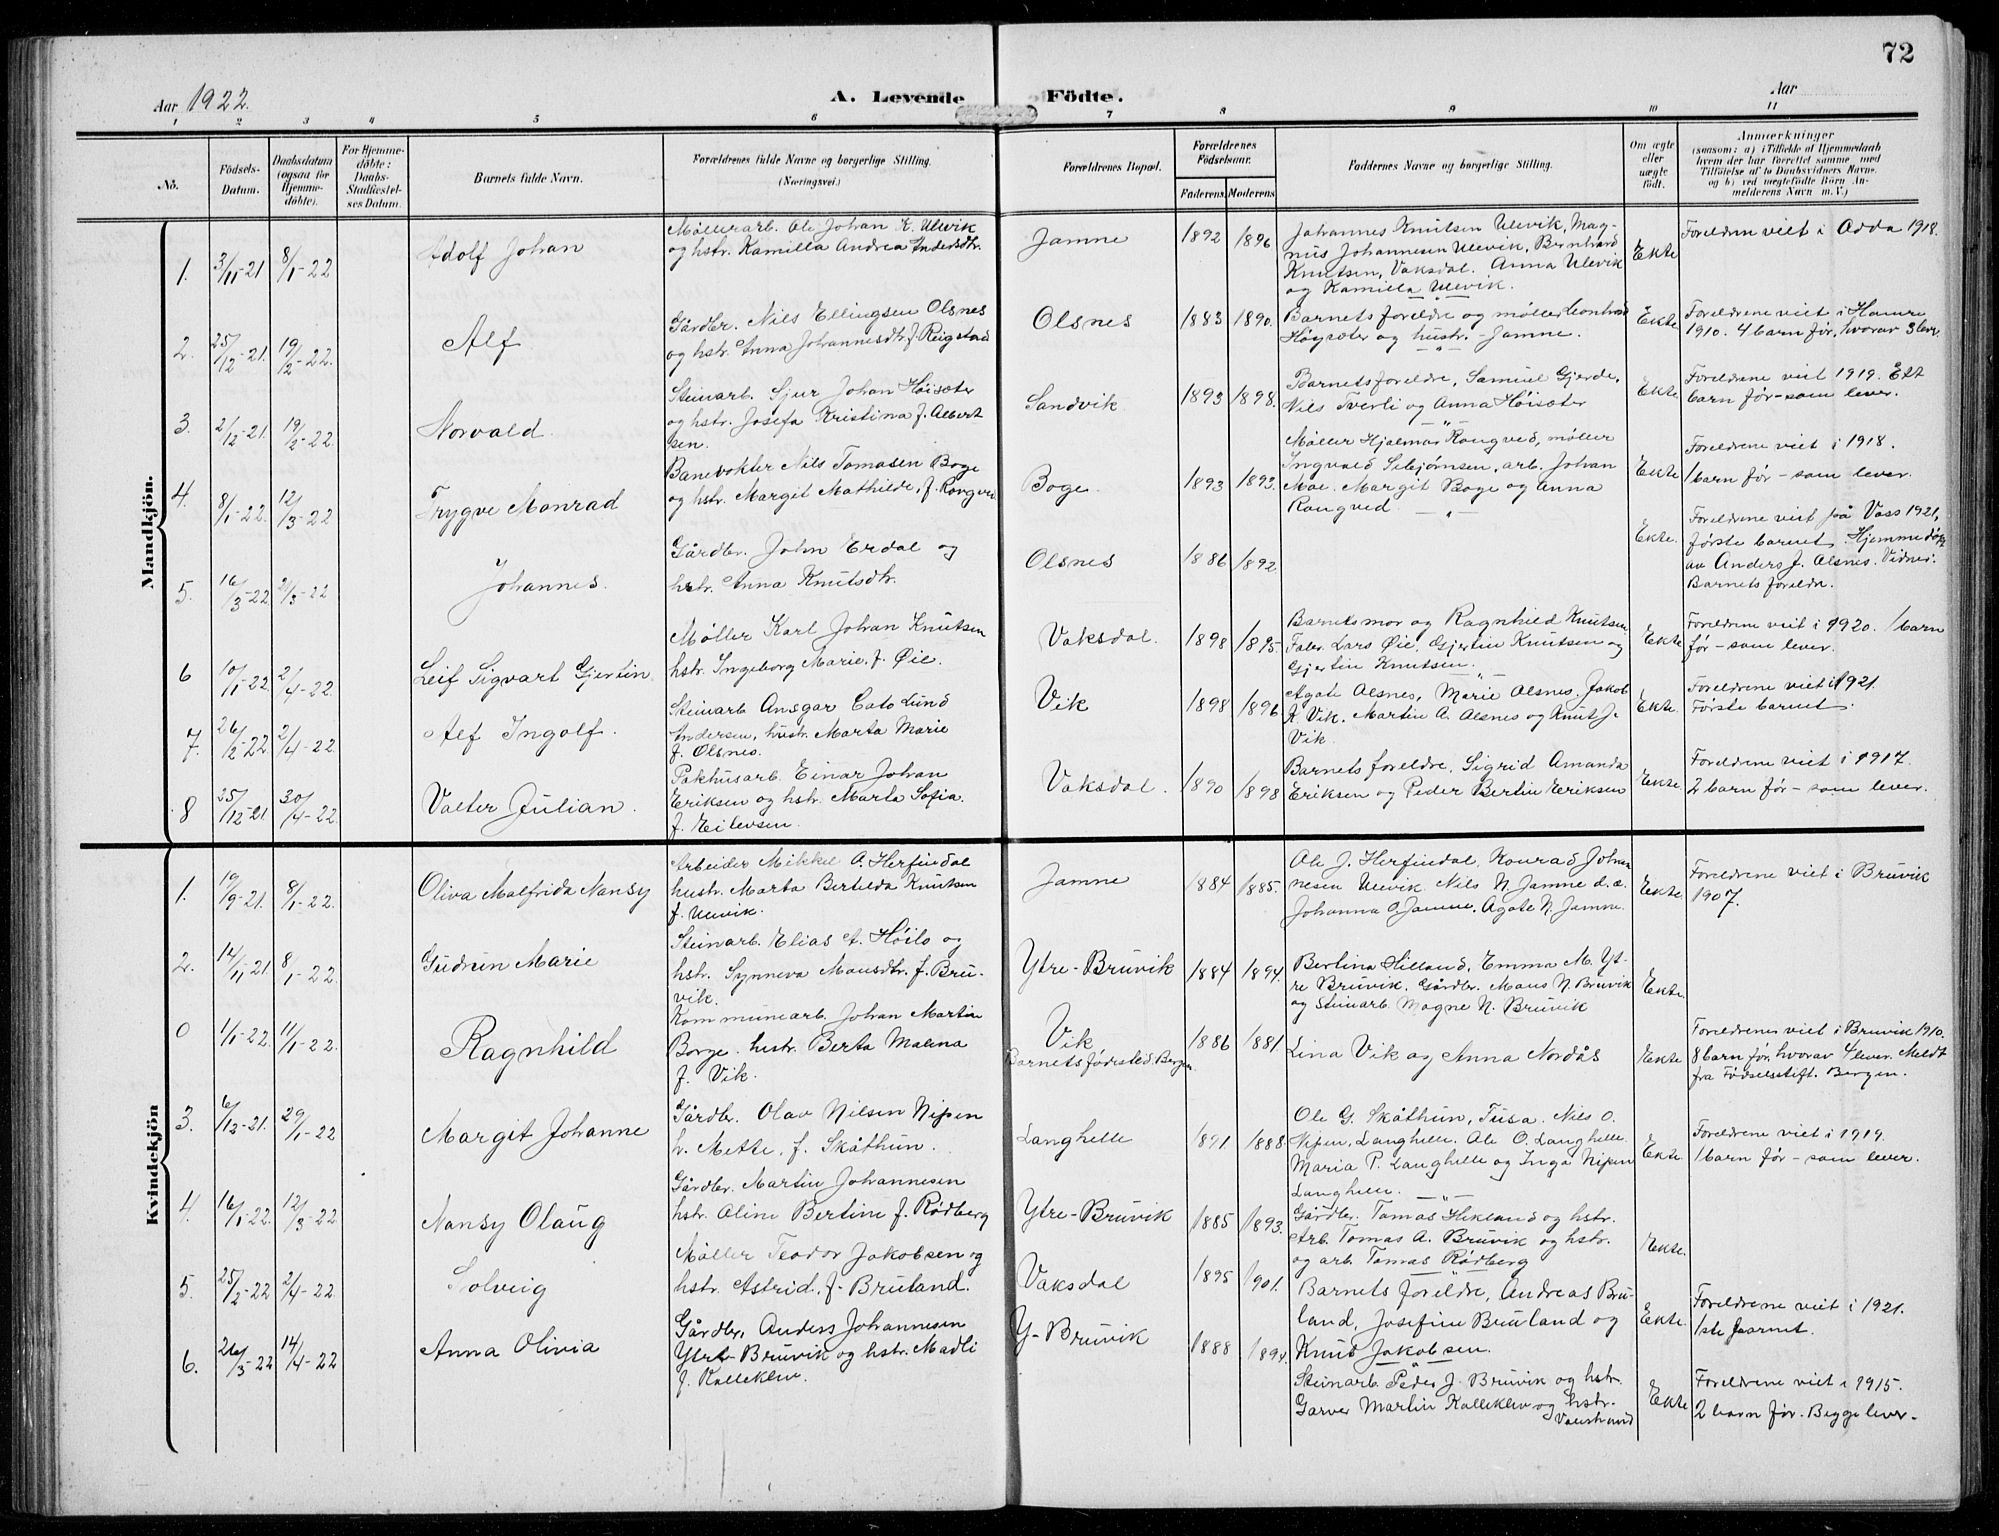 72
Aar 1922.
A. Levende Födte.
Aar
1 2 3 4 5 6 7 8 9 10 11
No.
Födsels-Datum.
Daabsdatum (ogsaa for Hjemme-döbte).
For Hjemme-döbte: Daabs-Stadfæstel-ses Datum.
Barnets fulde Navn.
Forældrenes fulde Navne og borgerlige Stilling.
(Næringsvei.)
Forældrenes Bopæl.
Forældrenes Födselsaar.
Faderens. Moderens.
Faddernes Navne og borgerlige Stilling.
Om ægte eller uægte födt.
Anmærkninger
(saasom: a) i Tilfælde af Hjemmedaab
hvem der har forrettet samme, med
Tilföielse af to Daabsvidners Navne,
og b) ved uægtefödte Börn An-
melderens Navn m. V.)
Mandkjön.
1. 3/11-21 8/1-22 Adolf Johan
Møllerarb. Ole Johan K. Ulevik
og hstr. Kamilla Andrea Andersdtr.
Jamne 1892 1896
Johannes Knutsen Ulevik, Mag-
nus Johannesen Ulevik, Bernhard
Knutsen, Vaksdal. Anna Ulevik
og Kamilla Ulevik.
Ekte
Foreldren viet i Odda 1918.
2. 25/12-21. 19/2-22. Alf
Gårdbr. Nils Ellingsen Olsnes
og hstr. Anna Johannesdtr. f. Reigstad
Olsnes 1883 1890.
Barnets foreldre og møller Leonhard
Høysæter og hustr. Jamne.
Ekte
Foreldrene viet i Hamre
1910. 4 barn før, hvorav 3 lever
3. 2/12-21. 19/2-22. Norvald.
Steinarb. Sjur Johan Høisæter
og hstr. Josefa Kristina f. Albert
sen.
Sandvik 1893 1898.
Barnets foreldre, Samuel Gjerde,
Nils Tverli og Anna Høisæter
Ekte.
Foreldrene viet 1919. Ett
barn før - som lever.
4. 8/1-22. 12/3-22 Trygve Monrad
Banevokter Nils Tomasen Boge
og hstr. Margit Mathilde, f. Rongved
Boge. 1893 1893.
Møller Hjalmar Rongved, møller
Ingvald Sebjørnsen, arb. Johan
Moe. Margit Boge og Anna
Rongved.
Ekte
Foreldrene viet i 1918.
1 barn før - som lever.
5. 16/3-22. 2/3-22 Johannes.
Gårdbr. John Erdal og
hstr. Anna Knutsdtr.
Olsnes 1886 1892
Ekte.
Foreldrene viet på Voss 1921,
første barnet. Hjemmedøpt
av Anders J. Olsnes. Vidner:
Barnets foreldre.
6 10/1-22. 2/4-22. Leif Sigvart Gjertin
Møller Karl Johan Knutsen
hstr. Ingeborg Marie, f. Øie.
Vaksdal. 1898 1895.
Barnets mor og Ragnhild Knutsen
Fabr. Lars Øie, Gjertin Knutsen og
Gjertin Knutsen.
Ekte
Foreldrene viet i 1920. 1 barn
før - som lever.
7. 26/2-22. 2/4-22. Alf Ingolf.
Steinarb. Ansgar Cato Lund
Andersen, hustr. Marta Marie
f. Olsnes.
Vik 1898 1896
Agate Olsnes, Marie Olsnes. Jakob
K. Vik. Martin A. Olsnes og Knut J.
Vik.
Ekte.
Foreldrene viet i 1921.
Første barnet.
8 25/12-21 30/4-22. Valter Julian.
Pakhusarb. Einar Johan
Eriksen og hstr. Marta Sofia.
f. Eilevsen.
Vaksdal. 1890 1898
Barnets foreldre, Sigrid Amanda
Eriksen og Peder Bertin Eriksen
Ekte.
Foreldrene viet i 1917.
2 barn før - som lever.
Kvindekjön
1. 19/9-21. 8/1-22. Oliva Malfrida Nansy
Arbeider Mikkel A. Herfindal
hustr. Marta Bertilda Knutsen
f. Ulevik.
Jamne 1884 1885.
Ole J. Herfindal, Konrad Johan
nesen Ulevik. Nils N. Jamne d. æ.
Johanna O. Jamne. Agate N. Jamne.
Ekte.
Foreldrene viet i Bruvik
1907.
2. 14/11-21. 8/1-22. Gudrun Marie
Steinarb. Elias A. Høilo og
hstr. Synneva Monsdtr. f. Bru-
vik.
Ytre-Bruvik 1884 1894.
Bertina Hilland, Emma M. Yt-
re Bruvik. Gårdbr. Mons N. Bruvik
og Steinarb. Magne N. Bruvik
Ekte.
0 1/1-22. 11/1-22. Ragnhild
Kommunearb. Johan Martin
Borge. hstr. Berta Malena
f. Vik.
Vik
Barnets fødested. Bergen.
1886 1881.
Lina Vik og Anna Nordås
Ekte
Foreldrene viet i Bruvik 1910.
8 barn før, hvorav 4 lever. Meldt
fra Fødselsstift. Bergen.
3. 6/12-21. 29/1-22 Margit Johanne
Gårdbr. Olav Nilsen Nipen
h. Mette, f. Skåthun.
Langhelle 1891 1888.
Ole G. Skåthun, Tusa. Nils O.
Nipen, Langhelle. Ole O. Langhelle.
Maria P. Langhelle og Inga Nipen
Langhelle.
Ekte.
Foreldrene viet i 1919.
1 barn før - som lever.
4. 16/1-22. 12/3-22 Nansy Olaug
Gårdbr. Martin Johannesen
hstr. Aline Bertine f. Rødberg
Ytre-Bruvik 1885 1893.
Gårdbr. Tomas Hekland og hstr.
Arb. Tomas A. Bruvik og hstr.
og arb. Tomas Rødberg
Ekte.
5. 25/2-22 2/4-22. Solveig
Møller Teodor Jakobsen og
hstr. Astrid, f. Bruland.
Vaksdal 1895 1901.
Barnets foreldre, Andreas Bru-
land, Josefine Bruland og
Knud Jakobsen.
Ekte.
Foreldrene viet i 1921.
1ste barnet.
6. 26/3-22 14/4-22 Anna Olivia
Gårdbr. Anders Johannesen
Ytre Bruvik og hstr. Madli
f. Kalleklev.
Y-Bruvik 1888 1894.
Steinarb. Peder J. Bruvik og hstr.
Garver Martin Kalleklev og hstr.
Vaxstrand
Ekte
Foreldrene viet i 1915.
2 barn før. Begge lever.